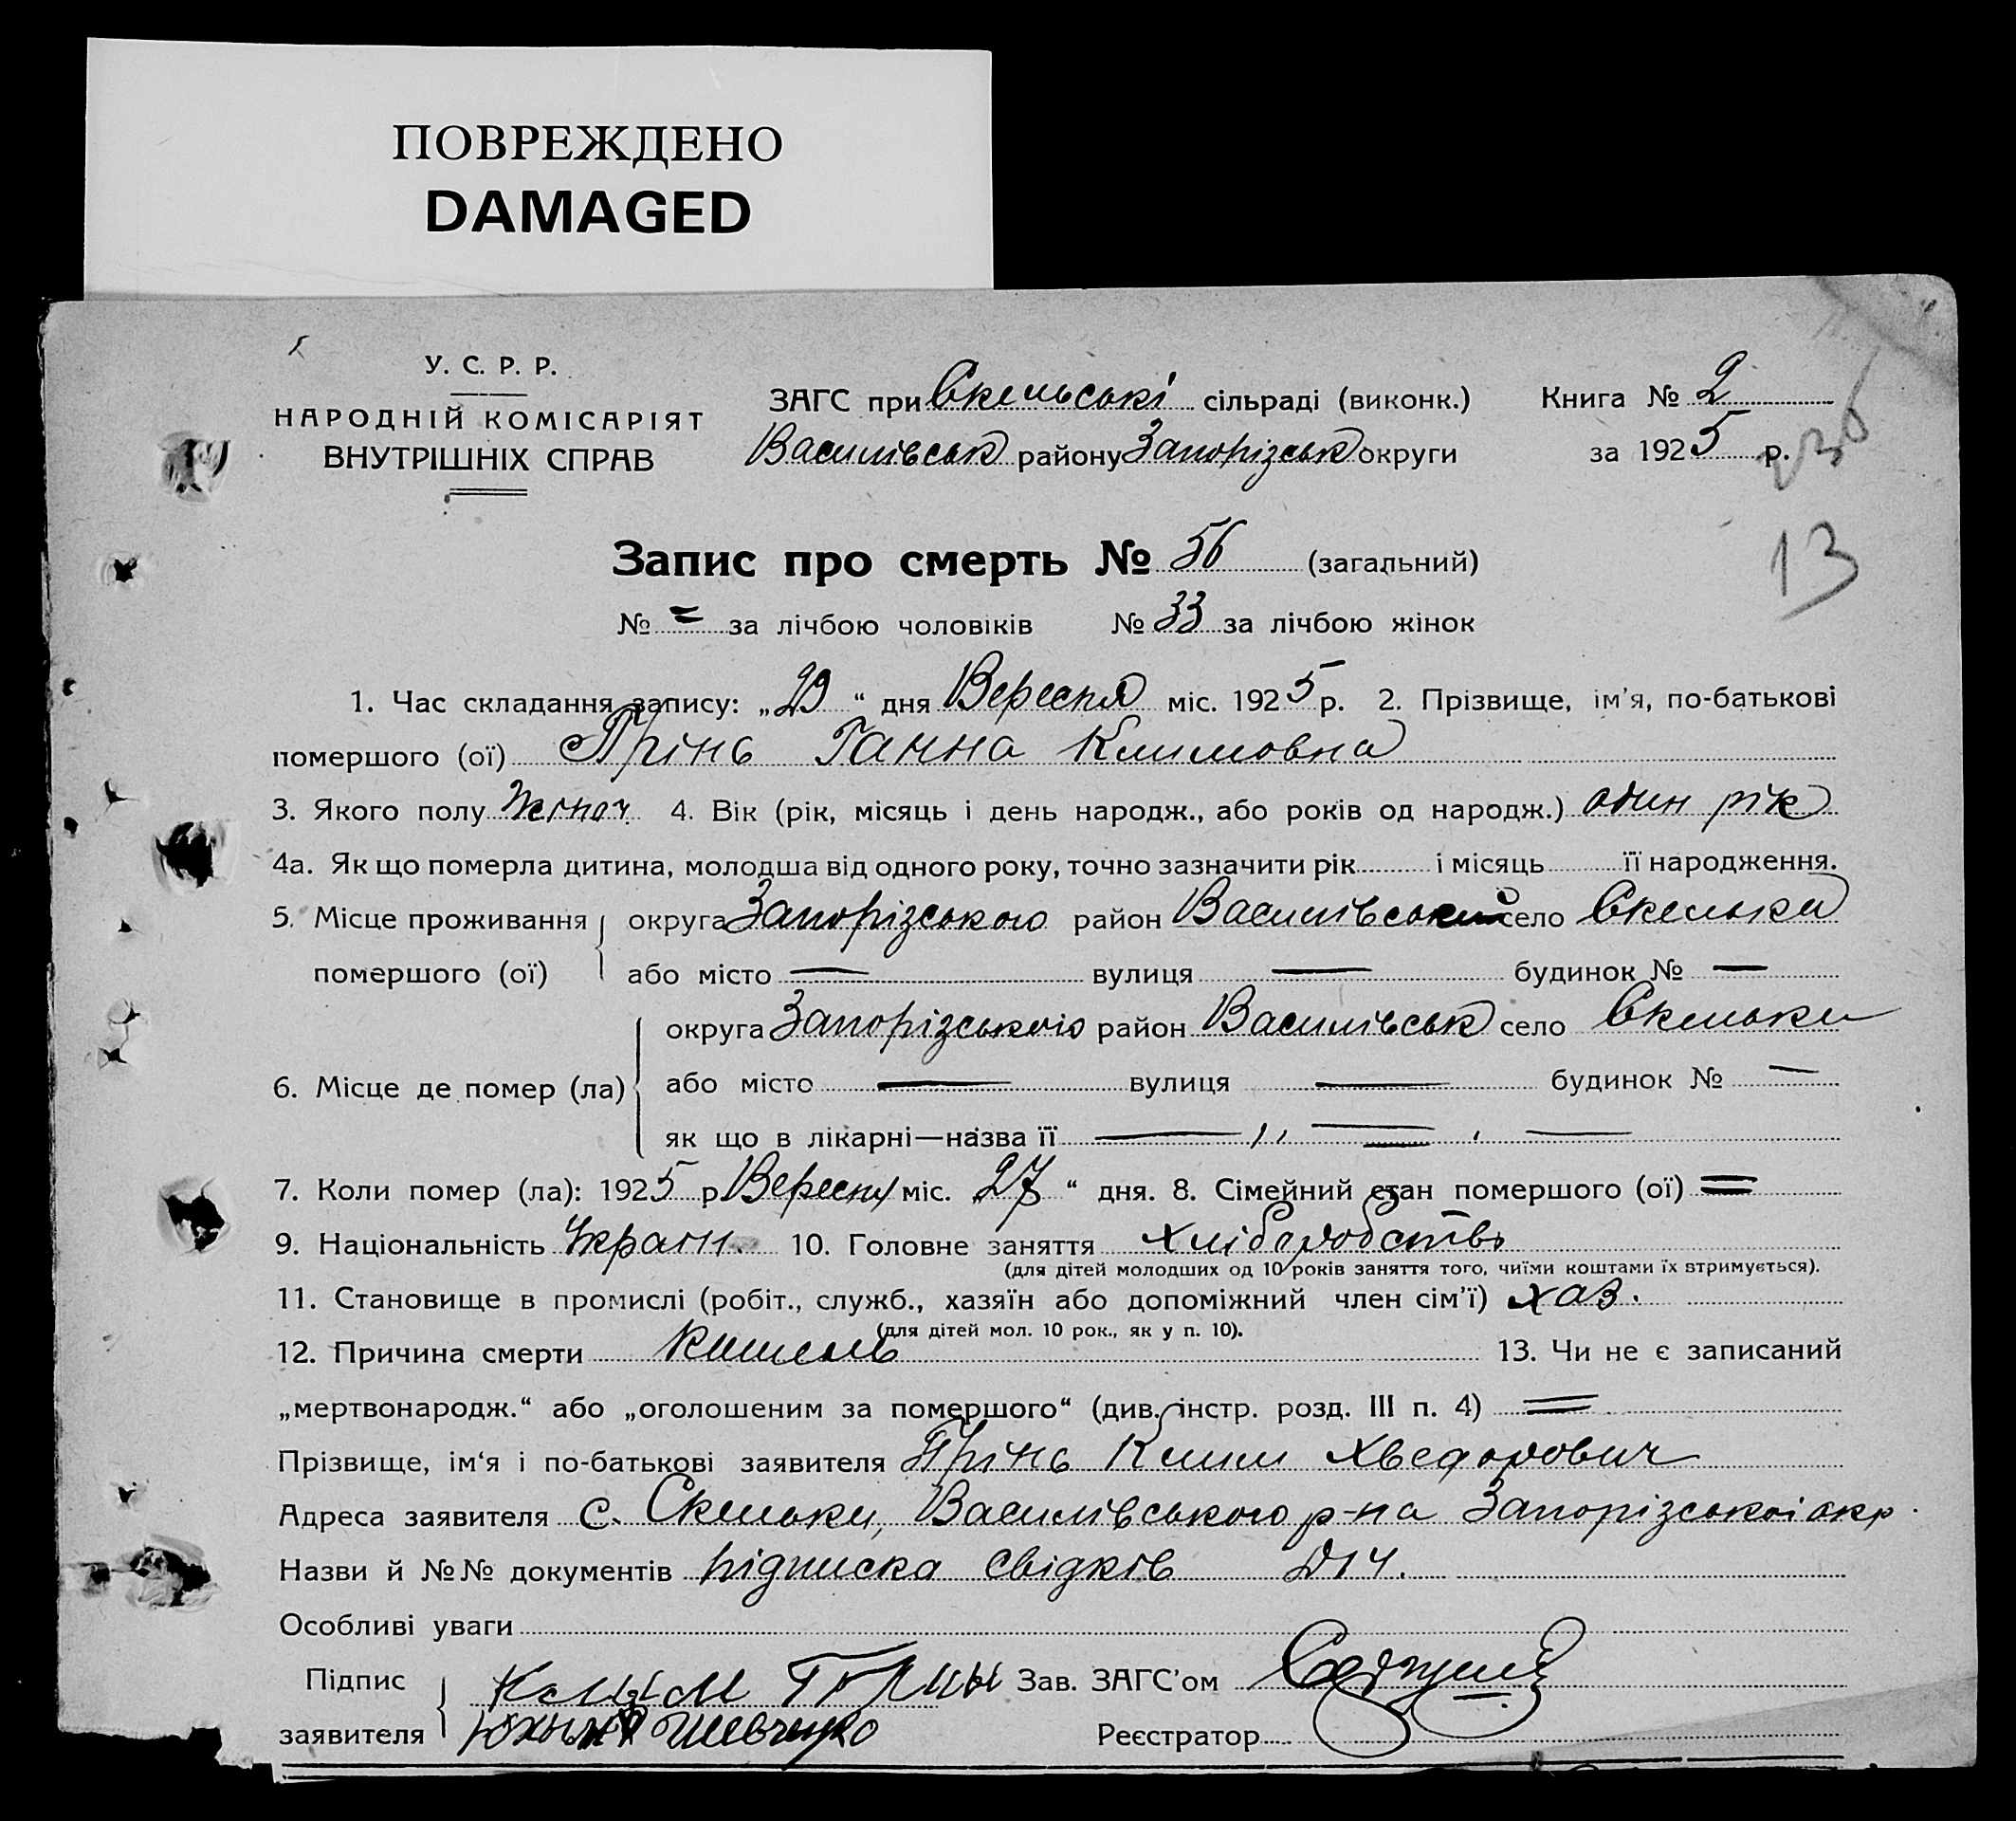 ПОВРЕЖДЕНО
DAMAGED
У. С. Р. Р.
НАРОДНІЙ КОМІСАРІЯТ
ВНУТРІШНІХ СПРАВ
ЗАГС при Скельські сільраді (виконк.)
Василівськ району Запорізськ округи
Книга № 2
за 1925 р.
236
13
Запис про смерть № 56 (загальний)
№ = за лічбою чоловіків № 33 за лічбою жінок
1. Час складання запису: „29“ дня Вересня міс. 1925 р. 2. Прізвище, ім'я, по-батькові
помершого (ої) Грінь Ганна Климовна
3. Якого полу жіноч. 4. Вік (рік, місяць і день народж., або років од народж.) один рік
4а. Як що померла дитина, молодша від одного року, точно зазначити рік і місяць її народження.
5. Місце проживання округа Запорізською район Василівський село Скельки
помершого (ої) або місто — вулиця — будинок № —
округа Запорізською район Василівськ село Скельки
6. Місце де помер (ла) або місто — вулиця — будинок № —
як що в лікарні—назва її —
7. Коли помер (ла): 1925 р. Вересня міс. 27“ дня. 8. Сімейний стан помершого (ої) =
9. Національність Украін. 10. Головне заняття хліборобство
(для дітей молодших од 10 років заняття того, чиїми коштами їх втримується).
11. Становище в промислі (робіт., служб., хазяїн або допоміжний член сім'ї) хаз.
(для дітей мол. 10 рок., як у п. 10).
12. Причина смерти кашель 13. Чи не є записаний
„мертвонародж.“ або „оголошеним за помершого“ (див. інстр. розд. III п. 4) =
Прізвище, ім'я і по-батькові заявителя Грінь Клим Хведорович
Адреса заявителя с. Скельки, Василівського р-на Запорізськоі окр.
Назви й №№ документів підписка свідків
Особливі уваги
Підпис
заявителя
Клым Грины
Шевченко
Зав. ЗАГС'ом
Реєстратор